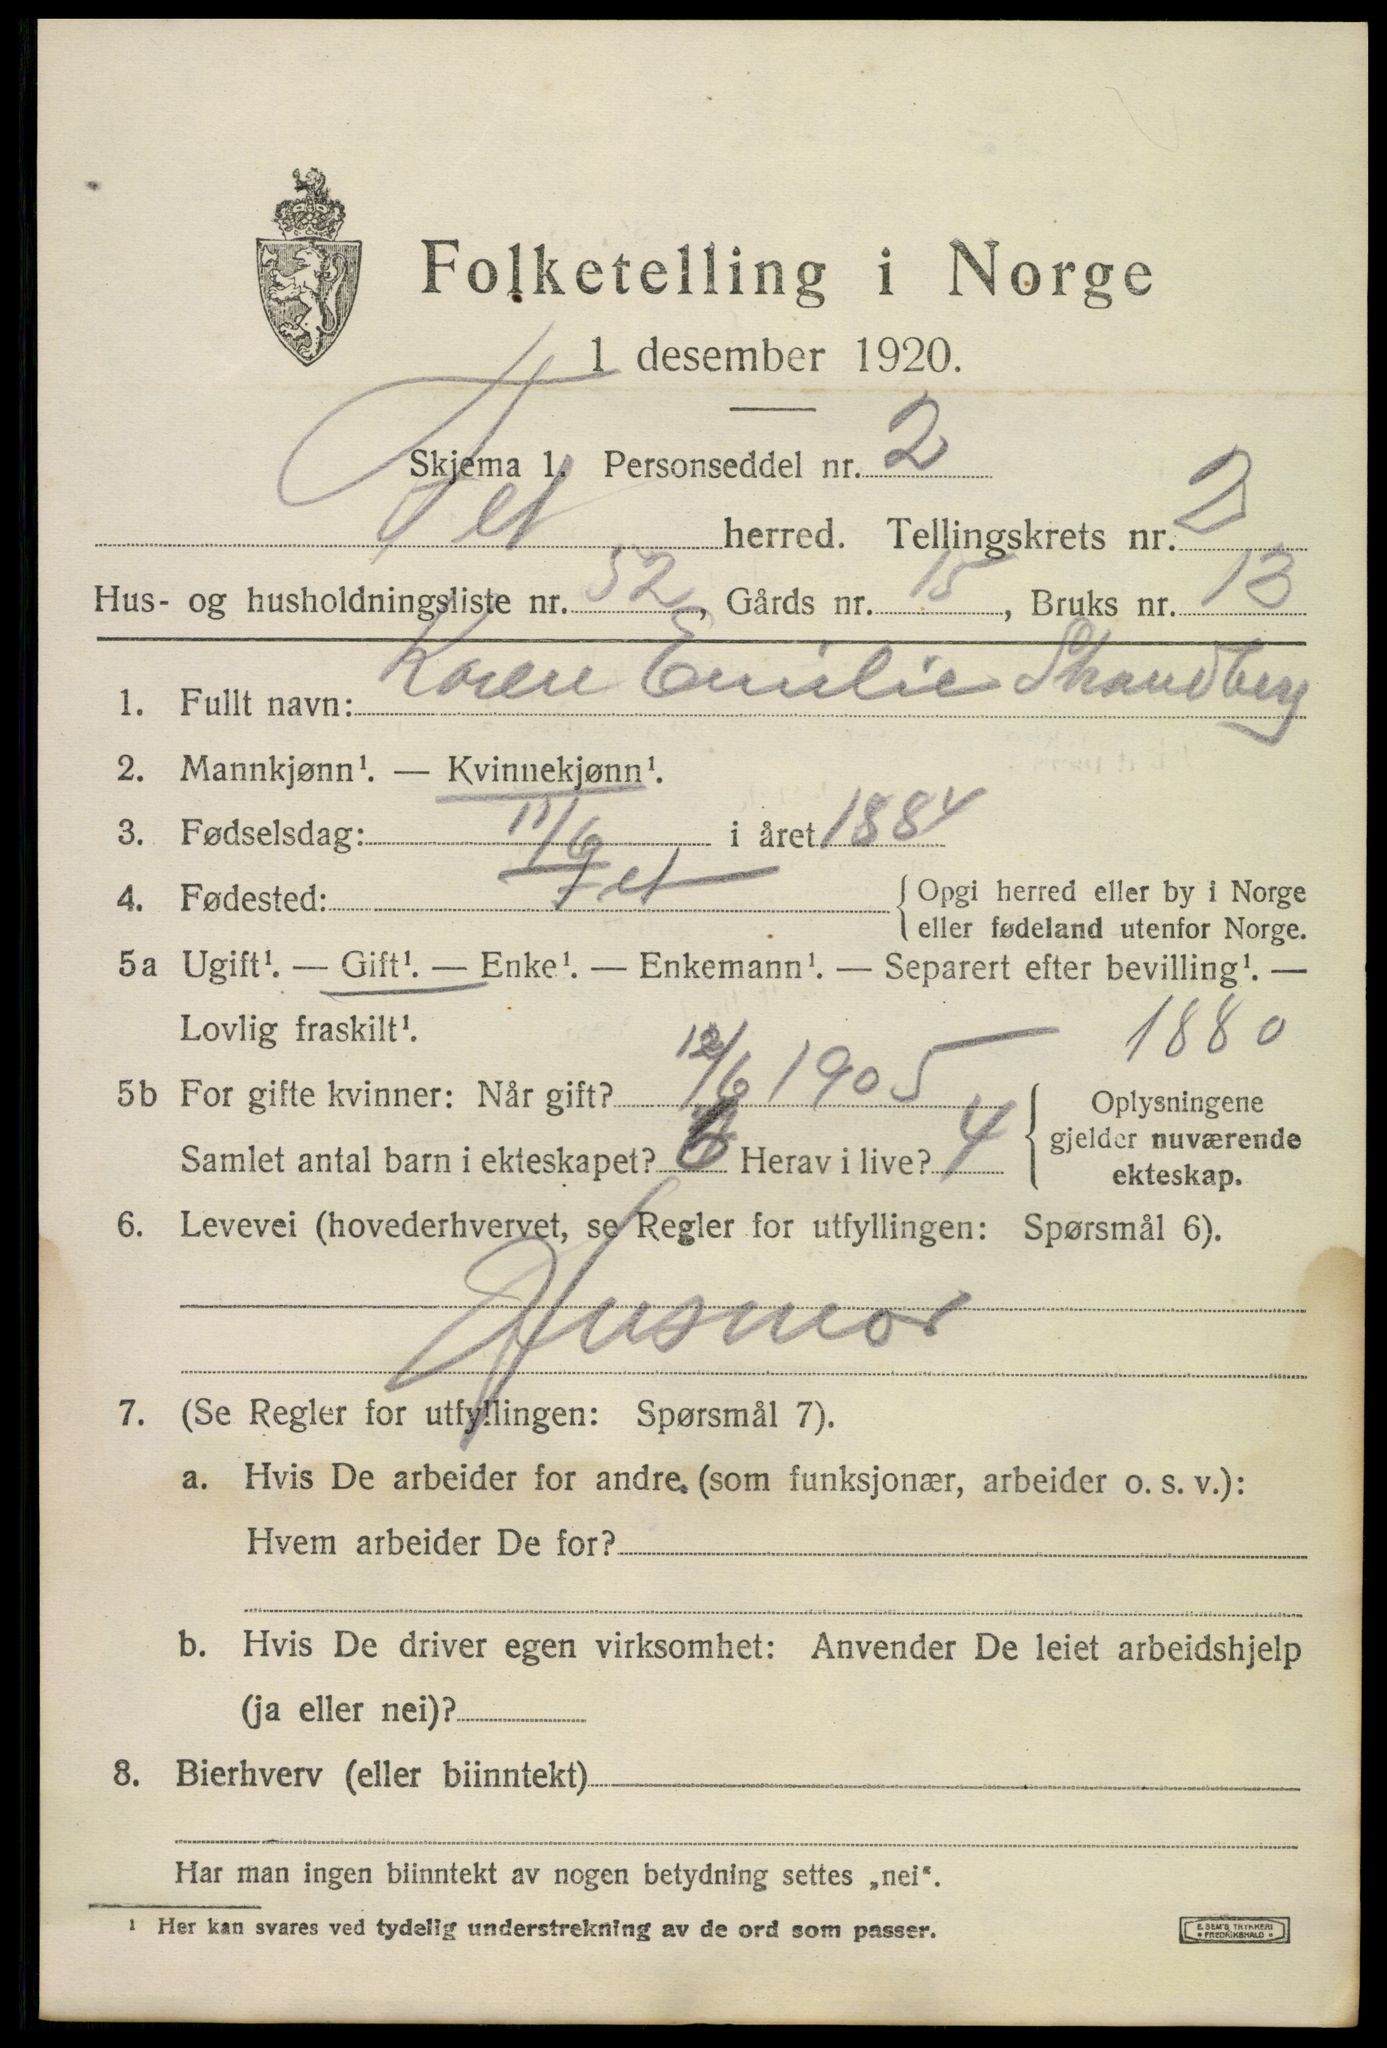 Folketelling i Norge
1 desember 1920.
Skjema 1. Personseddel nr. 2
Fet herred. Tellingskrets nr. 2
Hus- og husholdningsliste nr. 52, Gårds nr. 15, Bruks nr. 13
1. Fullt navn: Karen Emilie Strandberg
2. Mannkjønn¹. — Kvinnekjønn¹.
3. Fødselsdag: 11/6 i året 1884
4. Fødested: Fet { Opgi herred eller by i Norge
eller fødeland utenfor Norge.
5a Ugift¹. — Gift¹. — Enke¹. — Enkemann¹. — Separert efter bevilling¹. —
Lovlig fraskilt¹.
1880
5b For gifte kvinner: Når gift? 12/6 1905
Samlet antal barn i ekteskapet? 6 Herav i live? 4
{ Oplysningene
gjelder nuværende
ekteskap.
6. Levevei (hovederhvervet, se Regler for utfyllingen: Spørsmål 6).
Husmor
7. (Se Regler for utfyllingen: Spørsmål 7).
a. Hvis De arbeider for andre (som funksjonær, arbeider o. s. v.):
Hvem arbeider De for?
b. Hvis De driver egen virksomhet: Anvender De leiet arbeidshjelp
(ja eller nei)?
8. Bierhverv (eller biinntekt)
Har man ingen biinntekt av nogen betydning settes „nei“.
¹ Her kan svares ved tydelig understrekning av de ord som passer.
E. SEM'S TRYKKERI
FREDRIKSHALD